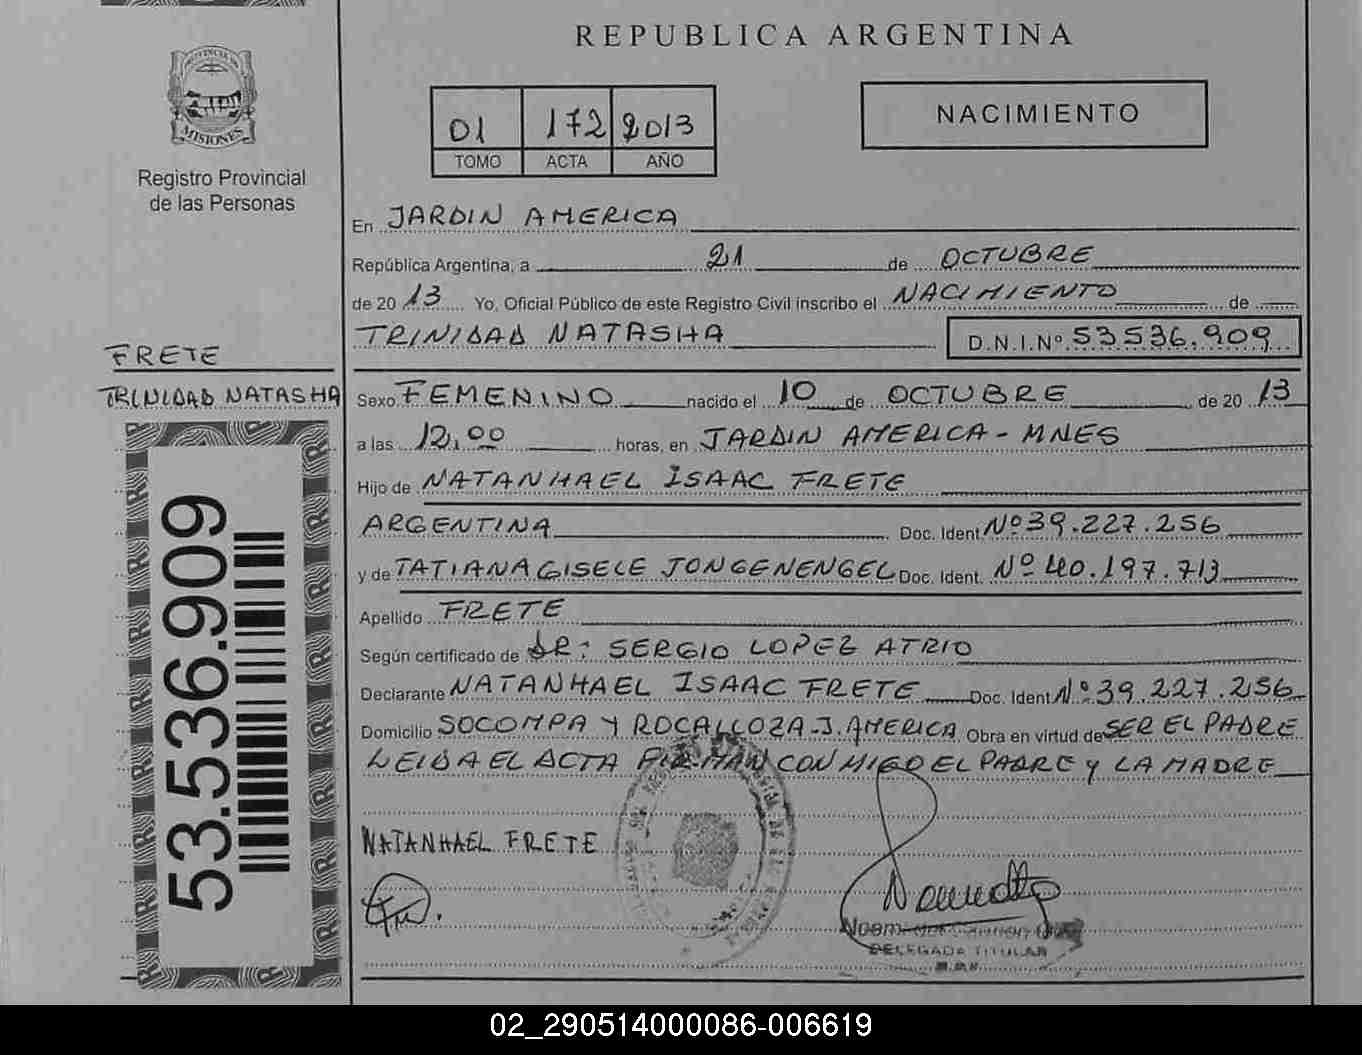 REPUBLICA ARGENTINA
PROVINCIA DE
MISIONES
Registro Provincial
de las Personas
01 172 2013
TOMO ACTA AÑO
NACIMIENTO
En JARDIN AMERICA
República Argentina, a 21 de OCTUBRE
de 20 13 Yo, Oficial Público de este Registro Civil inscribo el NACIMIENTO de
TRINIDAD NATASHA D.N.I.Nº 53536.909
FRETE
TRINIDAD NATASHA
Sexo FEMENINO nacido el 10 de OCTUBRE de 20 13
a las 12,00 horas, en JARDIN AMERICA - MNES
Hijo de NATANHAEL ISAAC FRETE
ARGENTINA Doc. Ident Nº 39.227.256
y de TATIANA GISELE JONGENENGEL Doc. Ident. Nº 40.197.713
Apellido FRETE
Según certificado de DR: SERGIO LOPEZ ATRIO
Declarante NATANHAEL ISAAC FRETE Doc. Ident Nº 39.227.256
Domicilio SOCOMPA Y ROCALLOZA - J. AMERICA Obra en virtud de SER EL PADRE
LEIDA EL ACTA FIRMAN CONMIGO EL PADRE Y LA MADRE
NATANHAEL FRETE
DELEGADA TITULAR
53.536.909
02_290514000086-006619